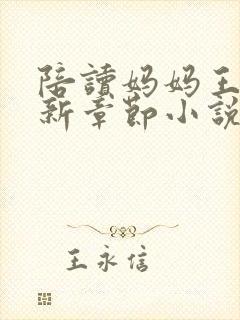 陪讀妈妈王
新章節小說
王永信